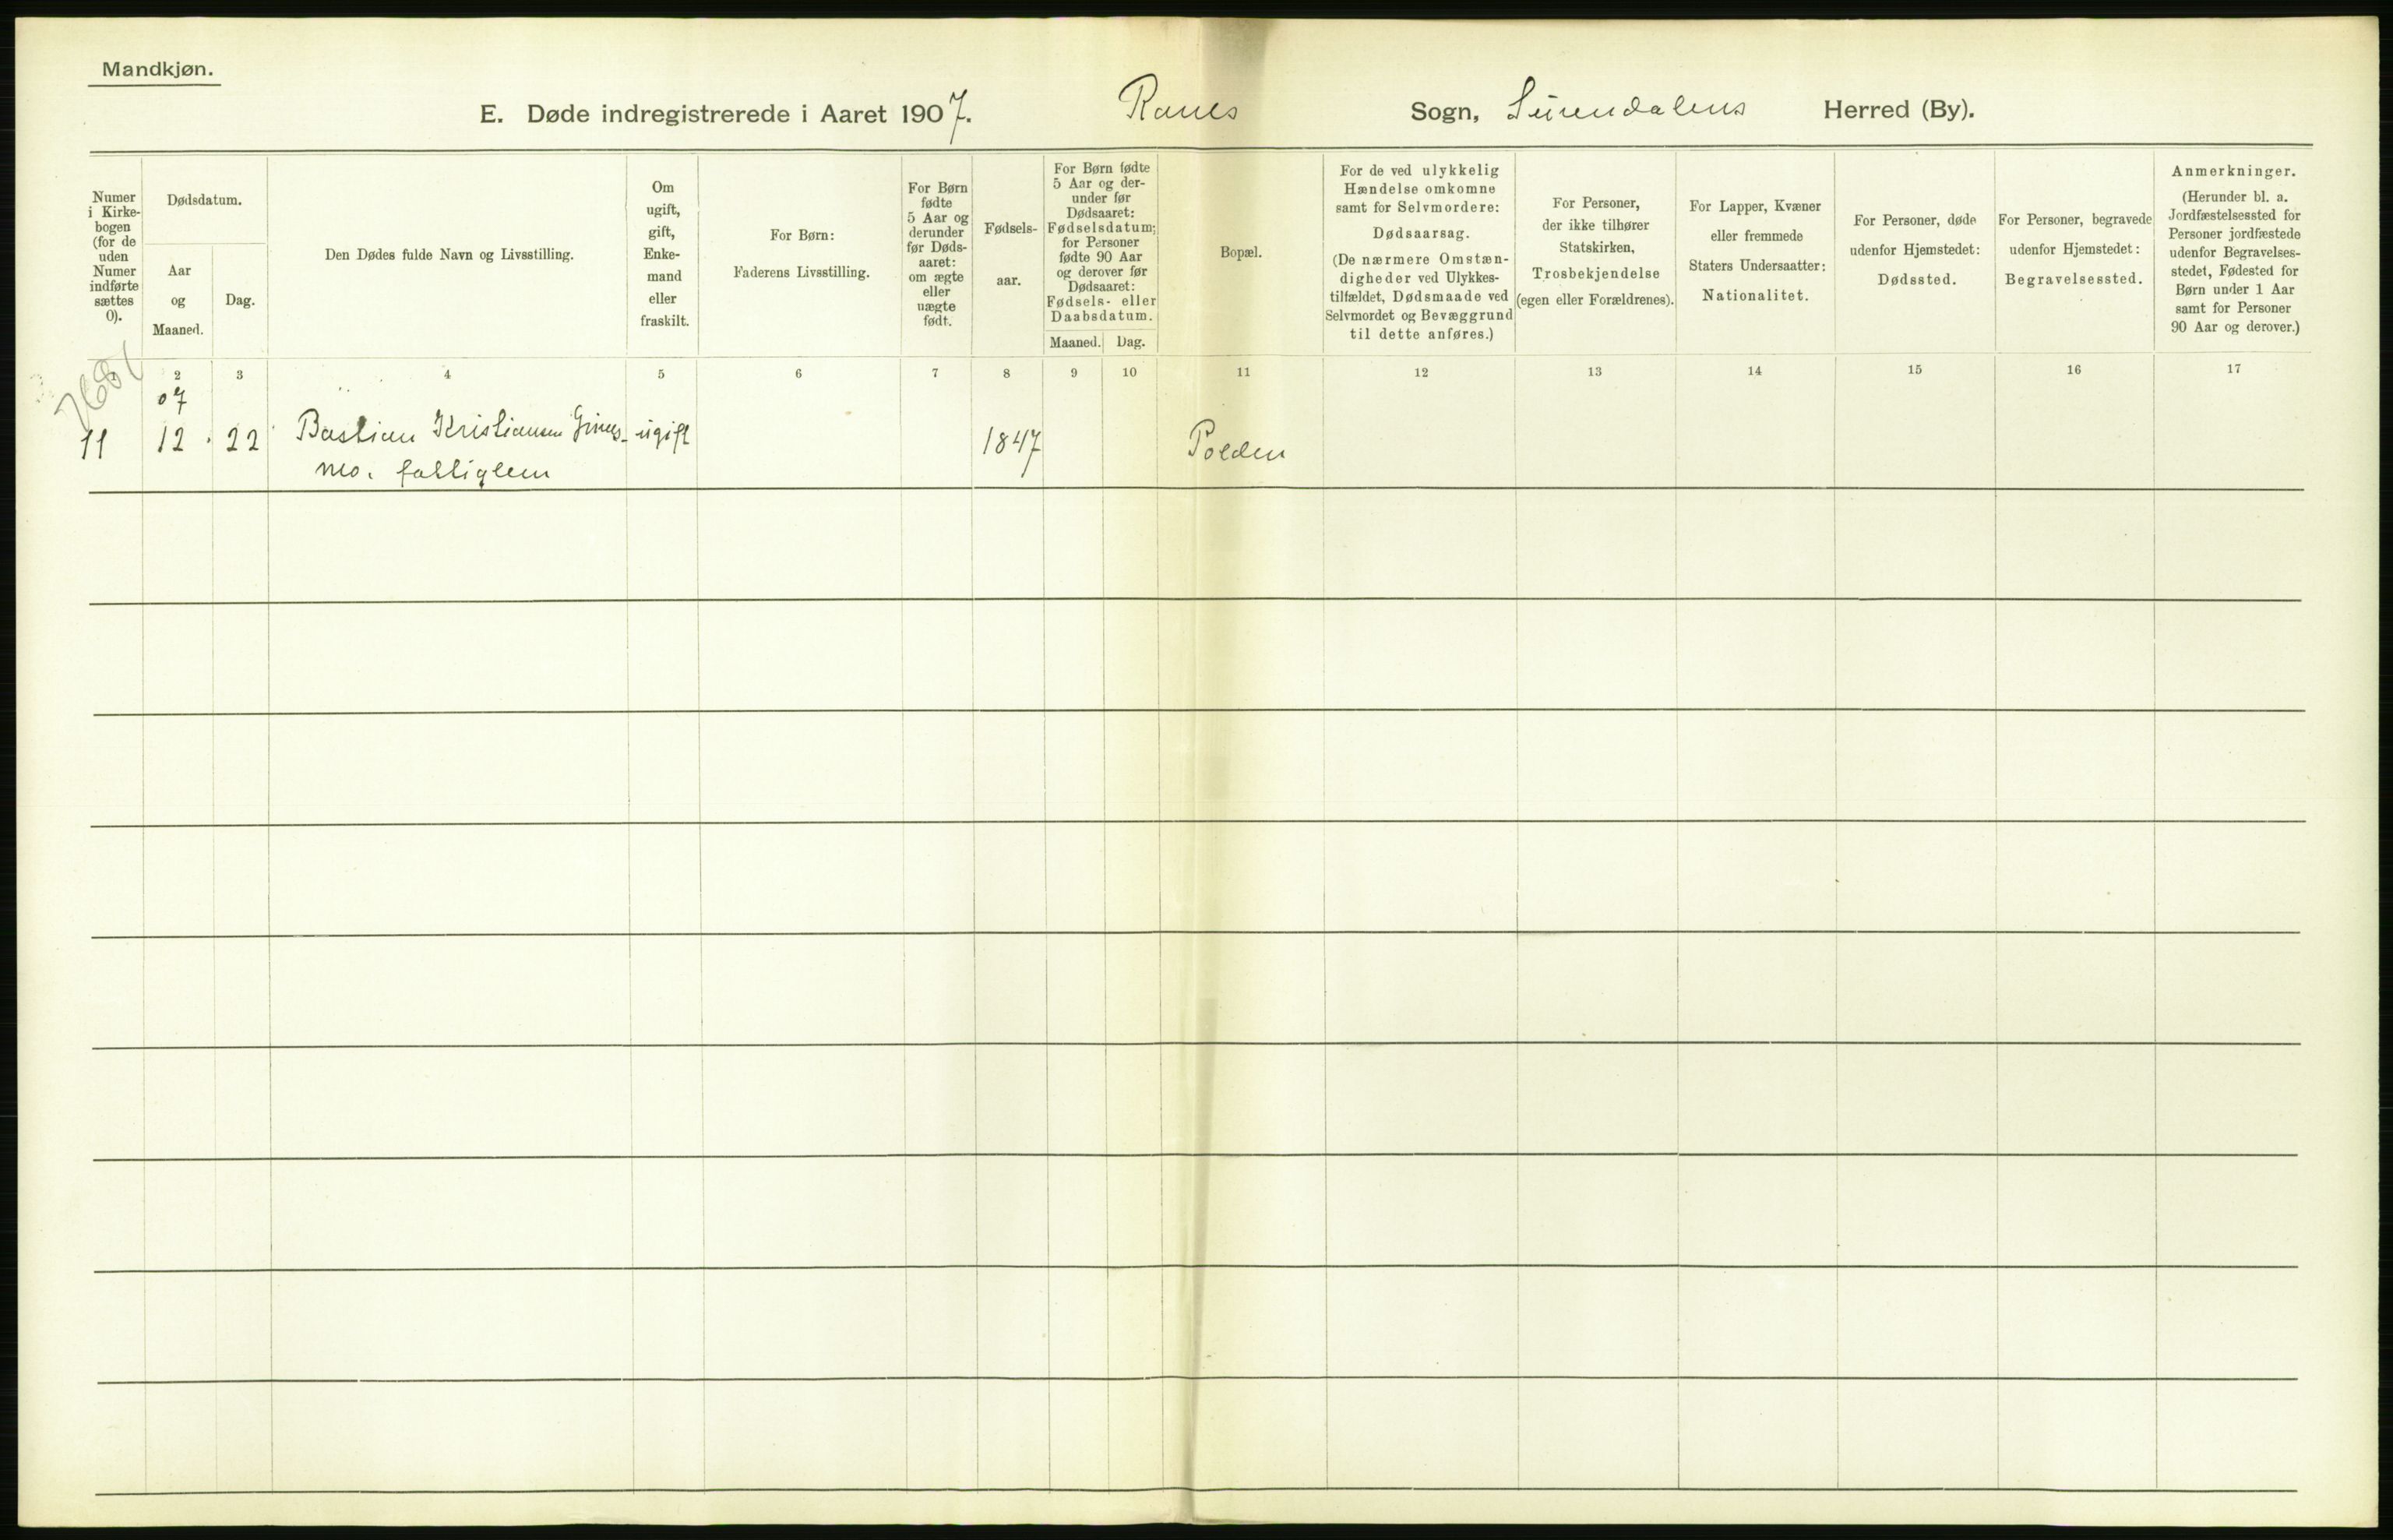 Mandkjøn.
E. Døde indregistrerede i Aaret 1907. Ranes Sogn, Surendalens Herred (By).
Numer
i Kirke-
bogen
(for de
uden
Numer
indførte
sættes
0).
Dødsdatum.
Aar
og
Maaned.
Dag.
Den Dødes fulde Navn og Livsstilling.
Om
ugift,
gift,
Enke-
mand
eller
fraskilt.
For Børn:
Faderens Livsstilling.
For Børn
fødte
5 Aar og
derunder
før Døds-
aaret:
om ægte
eller
uægte
født.
Fødsels-
aar.
For Børn fødte
5 Aar og der-
under før
Dødsaaret:
Fødselsdatum;
for Personer
fødte 90 Aar
og derover før
Dødsaaret:
Fødsels- eller
Daabsdatum.
Maaned. Dag.
Bopæl.
For de ved ulykkelig
Hændelse omkomne
samt for Selvmordere:
Dødsaarsag.
(De nærmere Omstæn-
digheder ved Ulykkes-
tilfældet, Dødsmaade ved
Selvmordet og Bevæggrund
til dette anføres.)
For Personer,
der ikke tilhører
Statskirken,
Trosbekjendelse
(egen eller Forældrenes).
For Lapper, Kvæner
eller fremmede
Staters Undersaatter:
Nationalitet.
For Personer, døde
udenfor Hjemstedet:
Dødssted.
For Personer, begravede
udenfor Hjemstedet:
Begravelsessted.
Anmerkninger.
(Herunder bl. a.
Jordfæstelsessted for
Personer jordfæstede
udenfor Begravelses-
stedet, Fødested for
Børn under 1 Aar
samt for Personer
90 Aar og derover.)
2 3 4 5 6 7 8 9 10 11 12 13 14 15 16 17
07
11 12. 22 Bastian Kristiansen ugift 1847 Polden
mo. fattiglem